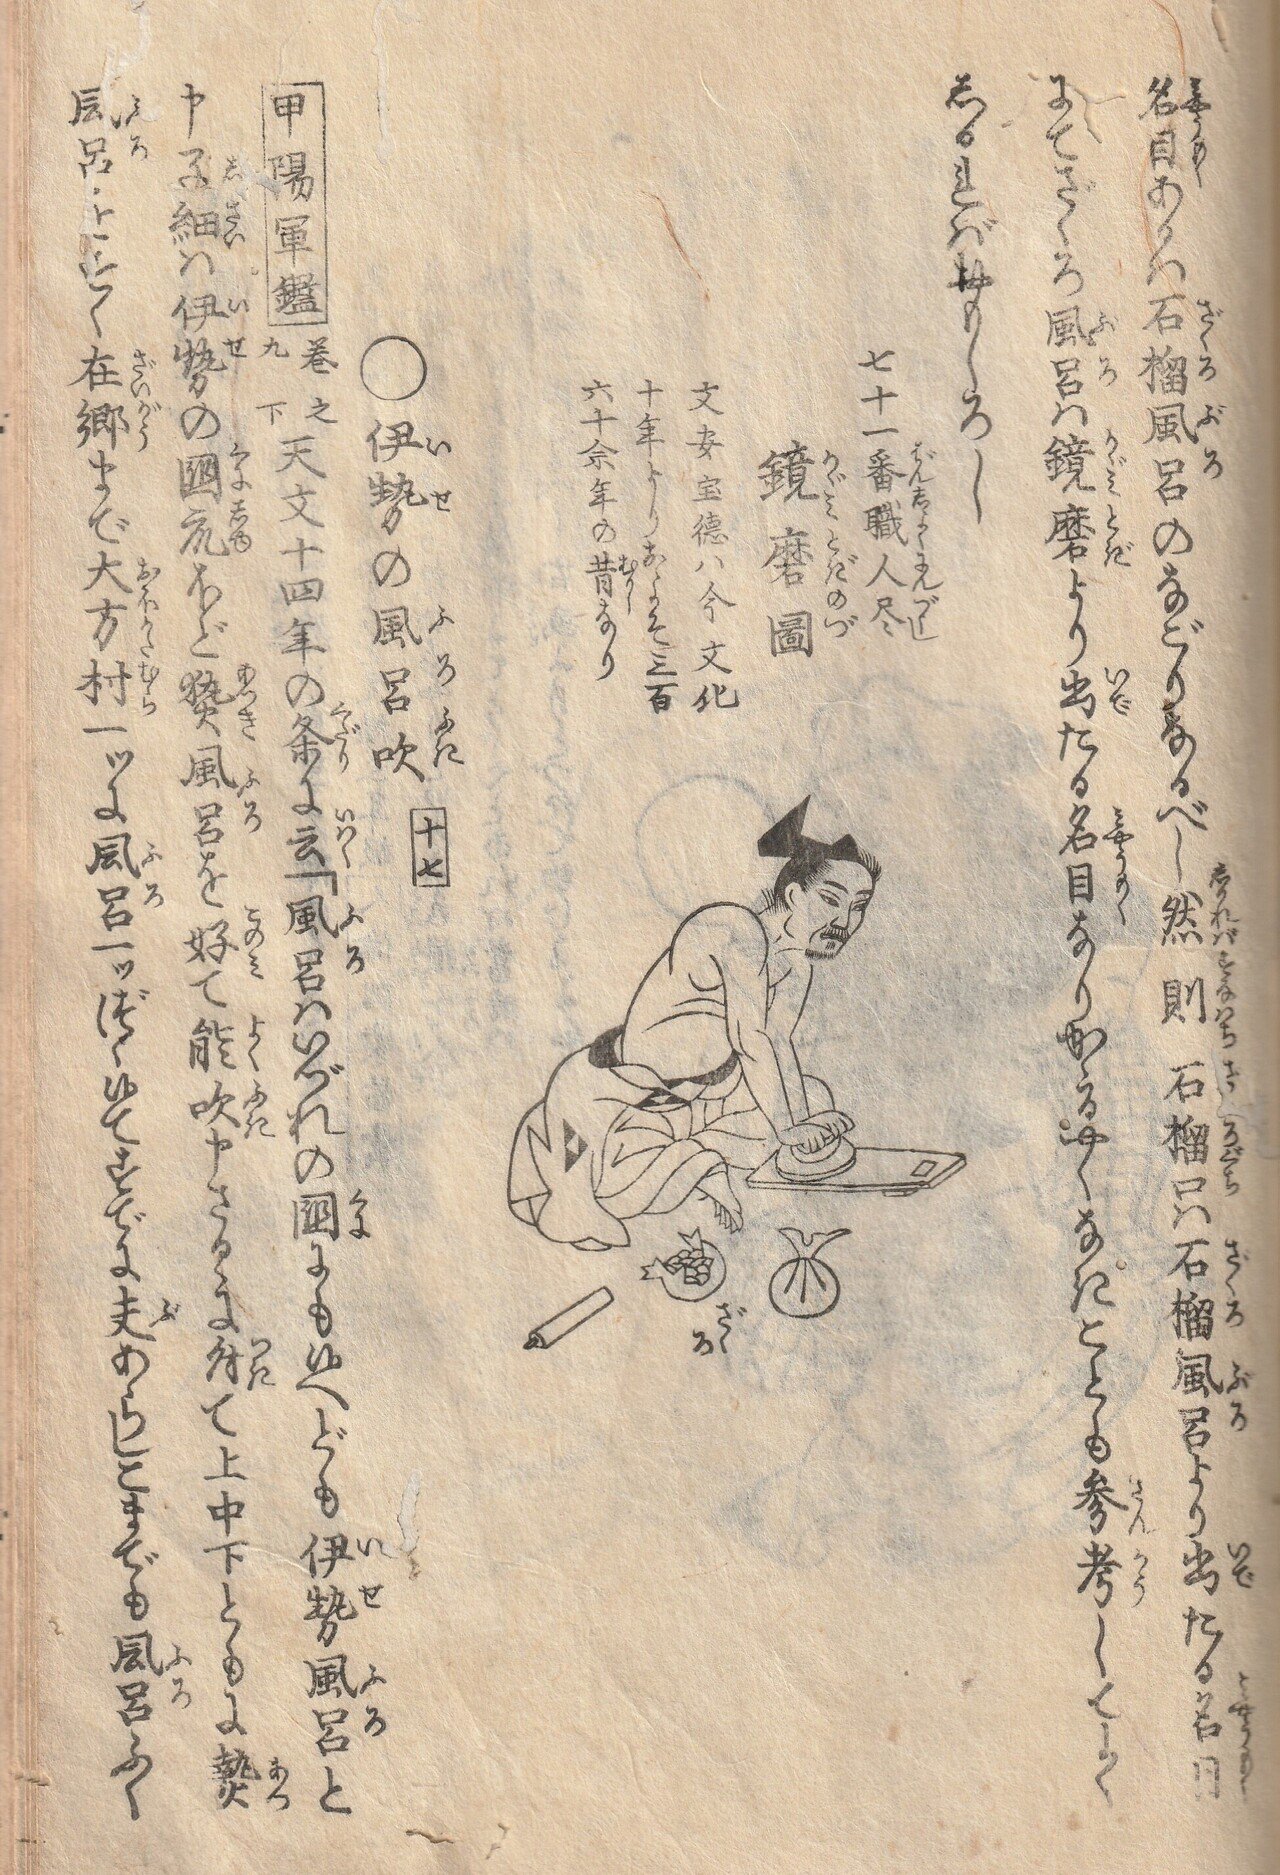 名目あるハ石榴風呂のなごりなるべし然則石榴口ハ石榴風呂より出たる名目
にてざくろ風呂ハ鏡磨より出たる名目なりかゝるやくなきことも参考してしく
しるればおもしろし
七十一番職人尽
鏡磨圖
文安宝徳ハ今文化
十年よりおよそ三百
六十余年の昔なり
ざくろ
○伊勢の風呂吹
十七
甲陽軍鑑 巻之九下 天文十四年の条に云「風呂ハいづれの国にも候へども伊勢風呂と
申子細ハ伊勢の国衆ほど熱風呂を好て能吹申さるゝに付て上中下ともに熱
風呂在郷まで大方村一ツに風呂一ツづゝ候てすでに夫あらしこまでも風呂ふく